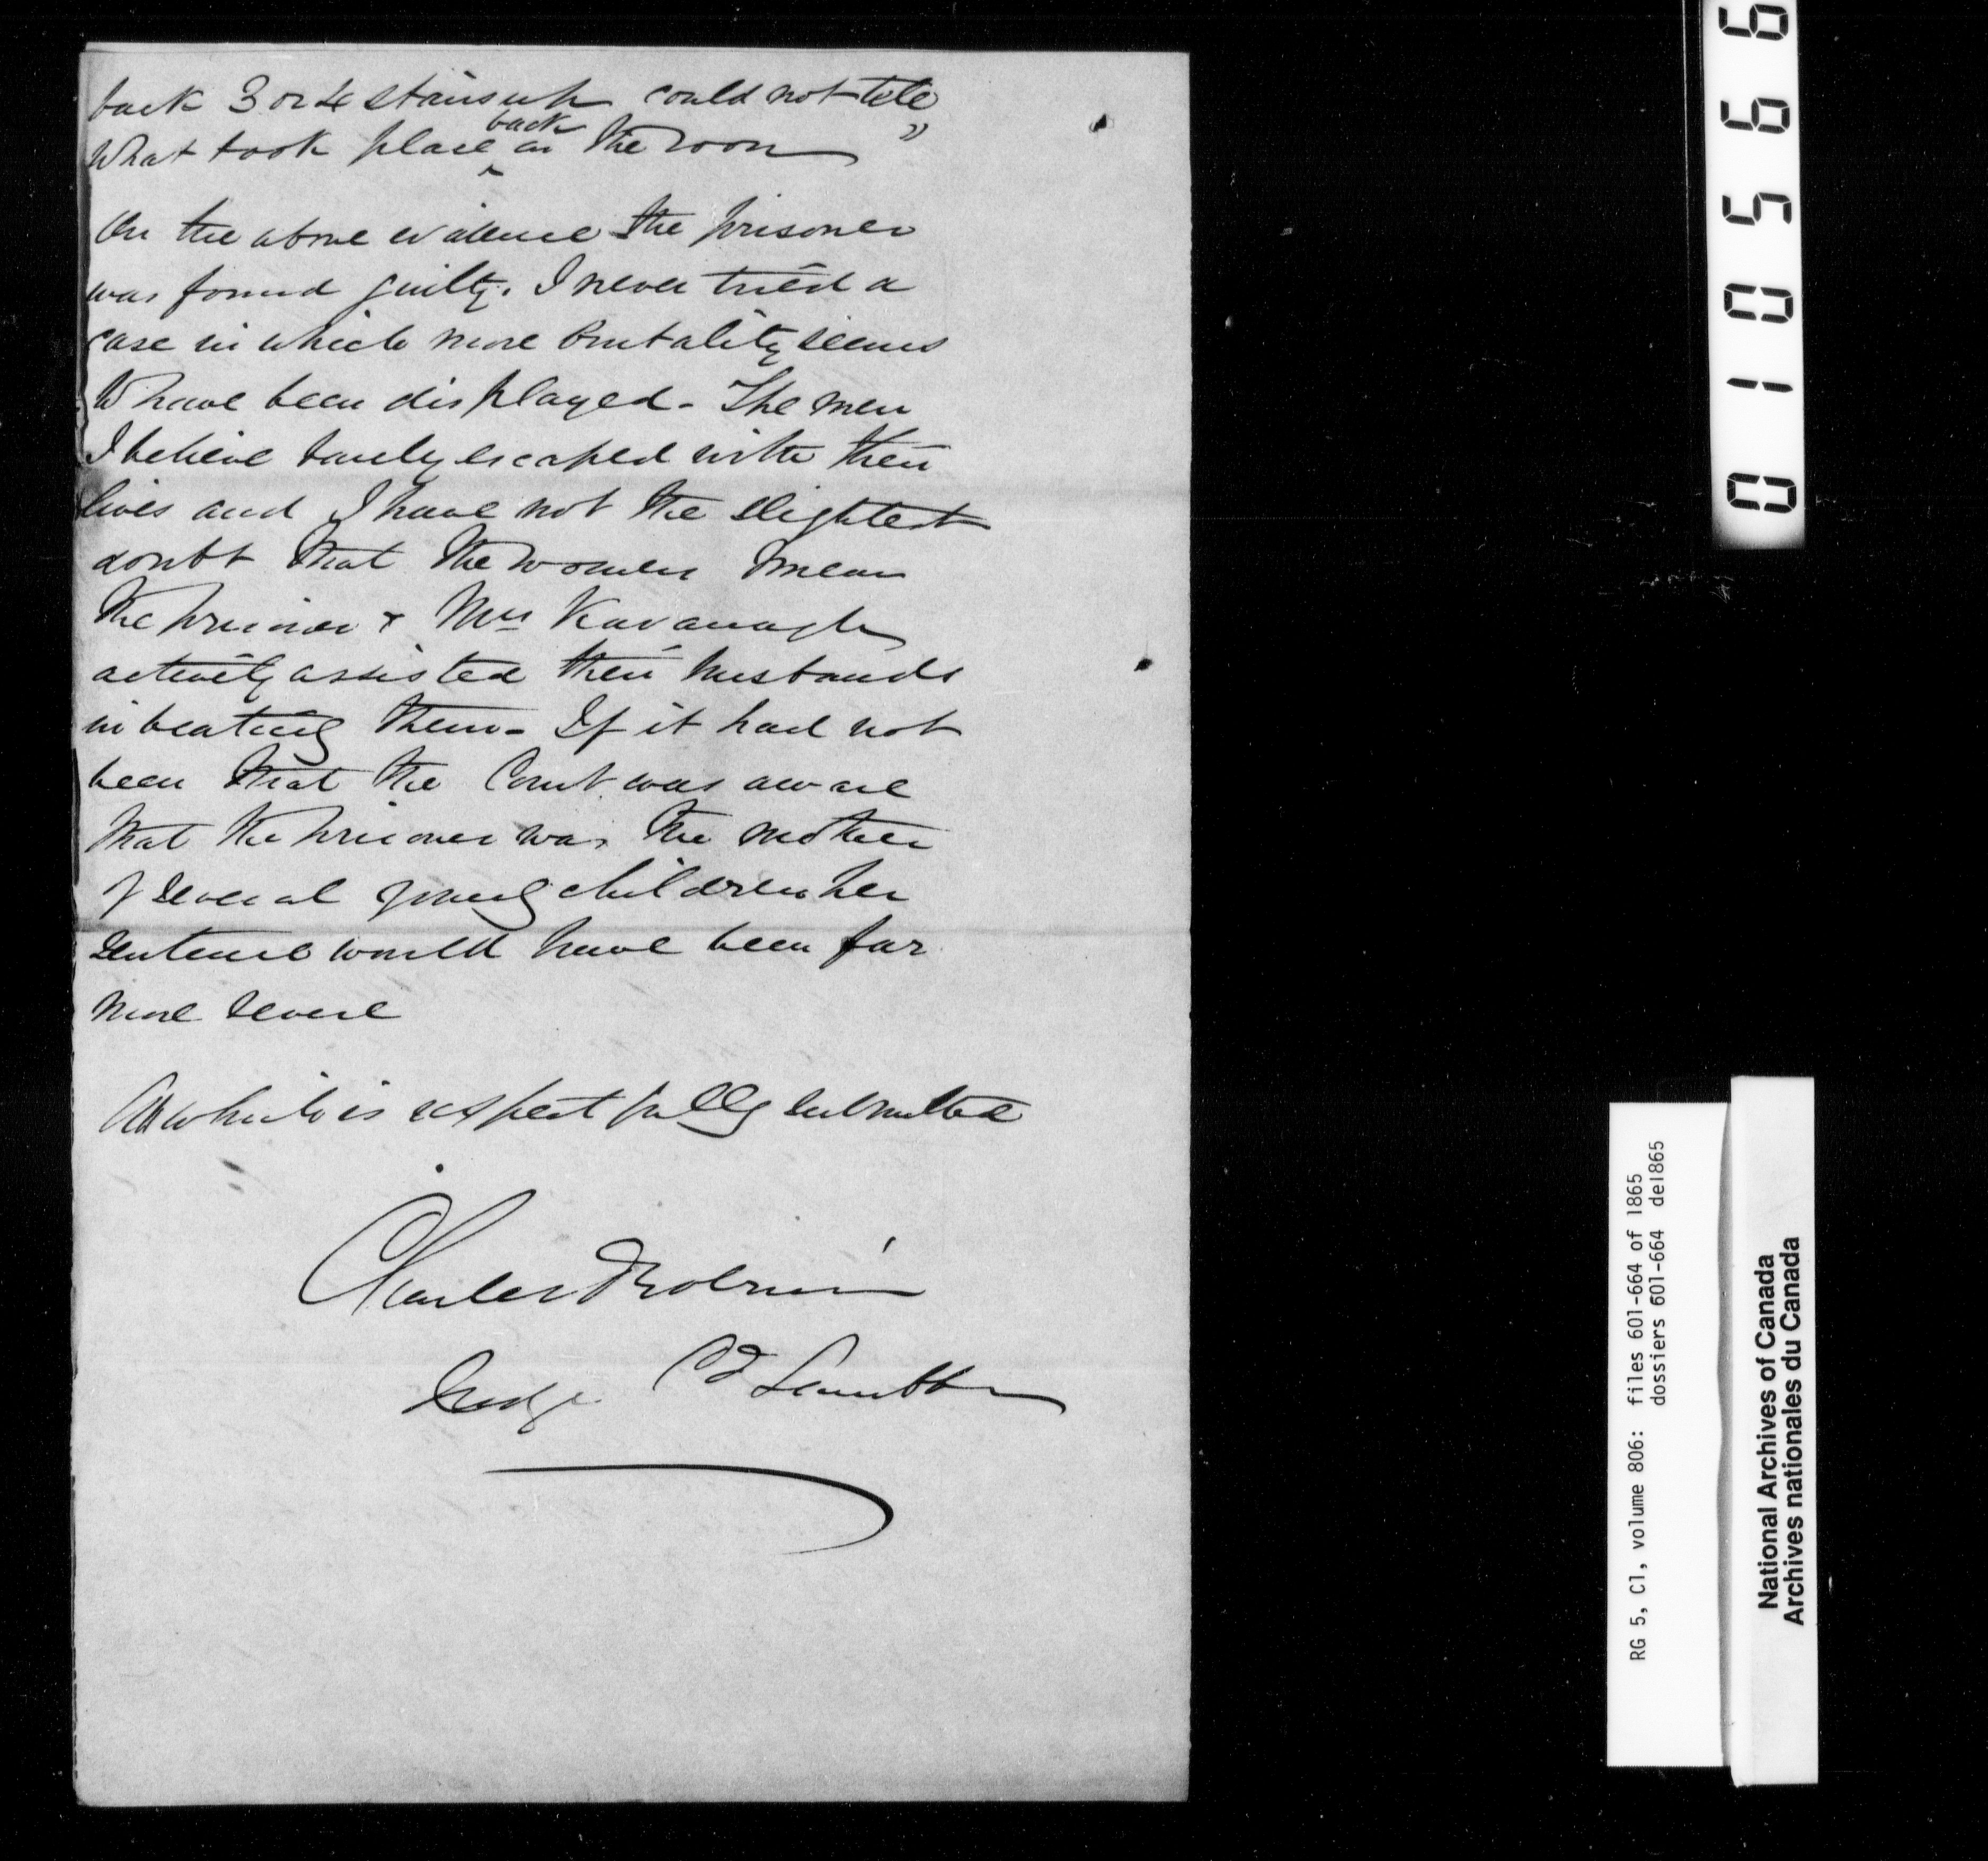 back 3 or 4 stairs up could not tell
what took place back in the room"
On the above evidence the prisoner
was found guilty. I never tried a
case in which more brutality seems
to have been displayed - The men
I believe barely escaped with their
lives and I have not the slightest
doubt that the women I mean
the prisoner & Mrs Kavanagh
actively assisted their husbands
in beating them - If it had not
been that the Court was aware
that the prisoner was the mother
of several young children her
sentence would have been far
more severe
All which is respectfully submitted
Charles Robinson
Judge Co Lambton
010566
RG 5, C1, volume 806: files 601-664 of 1865
dossiers 601-664 de1865
National Archives of Canada
Archives nationales du Canada